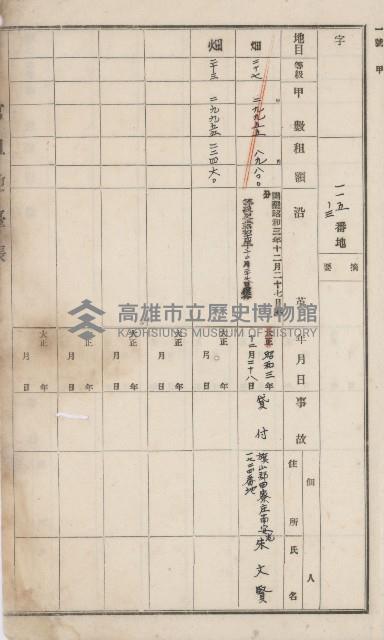 一號甲
字
一一五ノ一三番地
摘要
地目
等級
甲數
租額
沿革
年月日
事故
佃人
住所
氏名
畑
二十七
二九九五五
八九八〇
開墾昭和三年十二月二十七日
大正
昭和三年
十二月二十八日
貸付
旗山郡田寮庄南安老
一七二四番地
朱文賢
畑
二十三
二九九五五
二二四六〇
大正年月日
大正年月日
大正年月日
大正年月日
大正年月日
高雄市立歷史博物館
KAOHSIUNG MUSEUM OF HISTORY